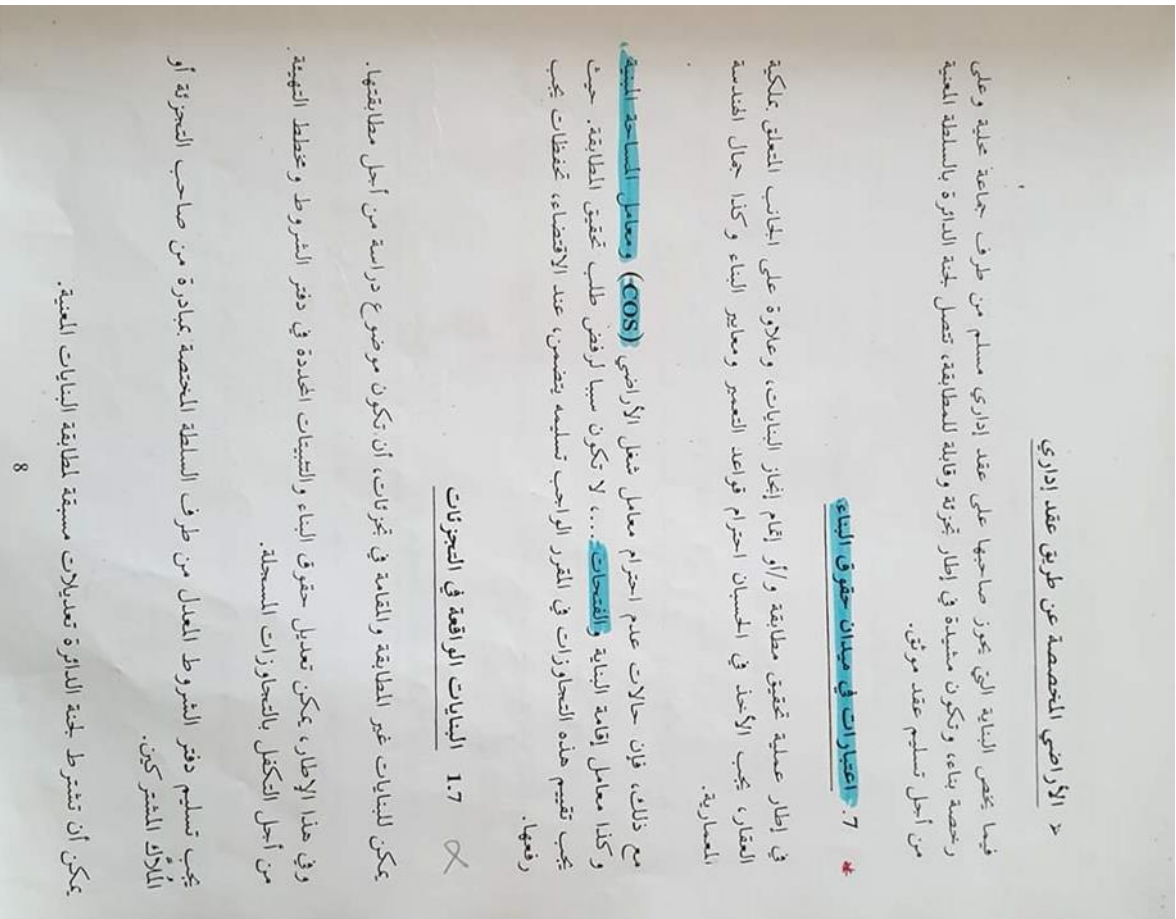 > الأراضي المخصصة عن طريق عقد إداري
فيما يخص البناية التي يحوز صاحبها على عقد إداري مسلم من طرف جماعة محلية وعلى
رخصة بناء، وتكون مشيدة في إطار تجزئة وقابلة للمطابقة، تتصل لجنة الدائرة بالسلطة المعنية
من أجل تسليم عقد موثق.
* 7. اعتبارات في ميدان حقوق البناء:
في إطار عملية تحقيق مطابقة و/أو إتمام إنجاز البنايات، وعلاوة على الجانب المتعلق بملكية
العقار، يجب الأخذ في الحسبان احترام قواعد التعمير ومعايير البناء وكذا جمال الهندسة
المعمارية.
مع ذلك، فإن حالات عدم احترام معامل شغل الأراضي (COS) ومعامل المساحة المبنية،
وكذا معامل إقامة البناية والفتحات...، لا تكون سببا لرفض طلب تحقيق المطابقة. حيث
يجب تقييم هذه التجاوزات في المقرر الواجب تسليمه يتضمن، عند الاقتضاء، تحفظات يجب
رفعها.
1.7 البنايات الواقعة في التجزئات
يمكن للبنايات غير المطابقة والمقامة في تجزئات، أن تكون موضوع دراسة من أجل مطابقتها.
وفي هذا الاطار، يمكن تعديل حقوق البناء والتثبيتات المحددة في دفتر الشروط ومخطط التهيئة
من أجل التكفل بالتجاوزات المسجلة.
يجب تسليم دفتر الشروط المعدل من طرف السلطة المختصة بمبادرة من صاحب التجزئة أو
الملاّك المشتركين.
يمكن أن تشترط لجنة الدائرة تعديلات مسبقة لمطابقة البنايات المعنية.
8